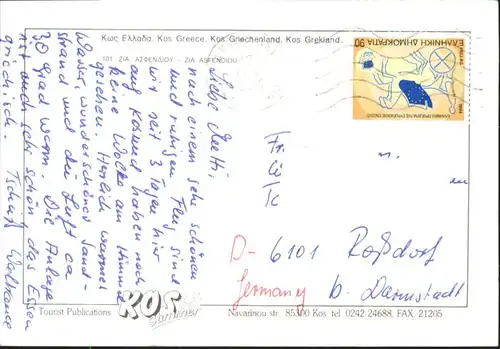 Κως Ελλαδα. Kos Greece. Kos Griechenland. Kos Grekland.
101 ΖΙΑ ΑΣΦΕΝΔΙΟΥ - ZIA ASFENDIOU
Liebe Metti,
nach einem sehr schönen
und ruhigen Flug sind
wir seit 3 Tagen hier
auf Kos und haben noch
keine Wolke am Himmel
gesehen. Herrlich warmes
Wasser, wunderschöner Sand-
strand und die Luft ca.
30 Grad warm. Die Anlage
ist auch sehr schön das Essen
griechisch. Tschüß Wolfrance
ΕΛΛΗΝΙΚΗ ΔΗΜΟΚΡΑΤΙΑ 90
Fr.
Tc
D- 6101 Roßdorf
Germany b. Darmstadt
Tourist Publications
KOS
Navarinou str. 85300 Kos tel 0242 24688, FAX. 21205